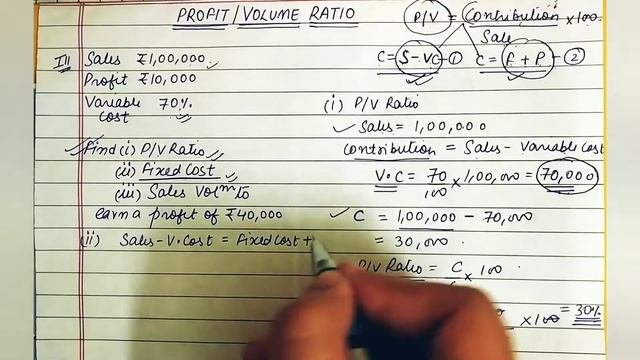 PROFIT/VOLUME RATIO
P/V = Contribution × 100
Sale
C = S - VC - ① C = F + P - ②
Ill Sales ₹1,00,000
Profit ₹10,000
Variable 70%
Cost
Find (i) P/V Ratio
(ii) Fixed Cost
(iii) Sales Volm to
earn a profit of ₹40,000
(ii) Sales - V.Cost = Fixed Cost +
(i) P/V Ratio
Sales = 1,00,000
Contribution = Sales - Variable Cost
V.C = 70 × 1,00,000 = 70,000
100
C = 1,00,000 - 70,000
= 30,000
P/V Ratio = C × 100
× 100 = 30%